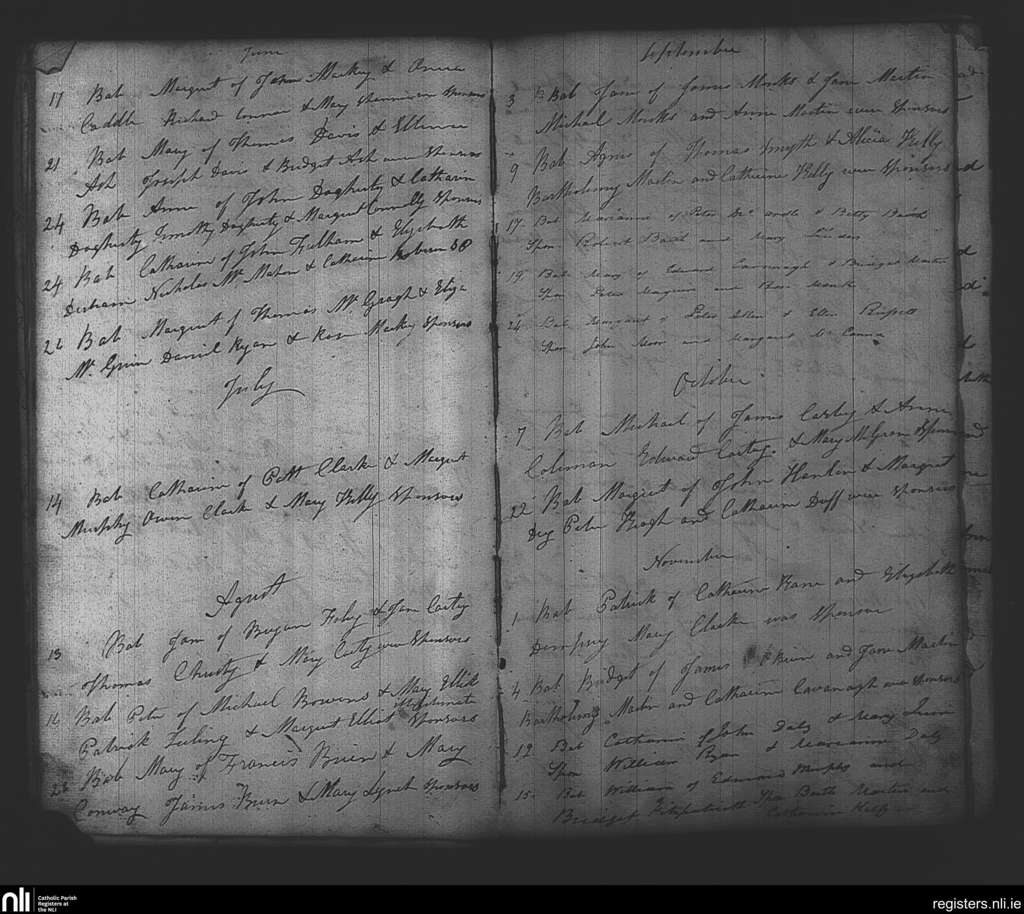 June
17 Bab Margret of John Mackey & Anna
Caddle Richard Connor & Mary Shannon Sponsors
21 Bab Mary of Thomas Davis & Ellenor
Ash Joseph Davis & Bridget Ash were Sponsors
24 Bab Anne of John Dogherty & Catharin
Dogherty Timothy Dogherty & Margret Connolly Sponsors
24 Bab Catharine of John Fulham & Elizebeth
Derham Nicholas Mc Mahon & Catharine
26 Bab Margret of Thomas Mc Gragh & Eliza
Mc Guin Daniel Ryan & Rose Mackey Sponsors
July
14 Bab Catharine of Patt Clarke & Margret
Murphy Owen Clark & Mary Kelly Sponsors
Agust
13 Bab Jam of Bryan Foley & Jam Carty
Thomas Christy & Mary Carty were Sponsors
16 Bab Peter of Michael Bowens & Mary Elliot
Illigitimate
Patrick Feeling & Margret Elliot Sponsors
26 Bab Mary of Francis Brien & Mary
Conway James Burn & Mary Lynch Sponsors
September
3 Bab Jam of James Monks & Jam Martin
Michael Monks and Anne Martin were Sponsors
9 Bab Agnes of Thomas Smyth & Alicia Kelly
Bartholomy Martin and Catherine Kelly were Sponsors
17 Bat Marianne of Peter Mc Ardle & Betty Baird
Spon Robert Baird and Mary
19 Bat Mary of Edward Cavanagh & Bridget Martin
Spon Peter Maguire and Rose
24 Bat Margaret of Peter Allen & Ellen Russell
Spon John Moor and Margaret Mc Cann
October
7 Bab Michael of James Carty & Anne
Coleman Edward Carty & Mary McGrane Sponsors
22 Bab Margret of John Hanlon & Margret
Dey Peter Keogh and Catharine Duff were Sponsors
November
1 Bab Patrick of Catharine Kane and Elizebeth
Dempsey Mary Clarke was Sponsor
4 Bab Bridget of James Brien and Jane Martin
Bartholomy Martin and Catharine Cavanagh were Sponsors
12 Bat Catharine of John Daly & Mary
Spon William Ryan & Marianne Daly
15 Bat William of Edmond Murphy and
Bridget Fitzpatrick Spon Barth Martin and
Catharine Kelly
nli Catholic Parish
Registers at
the NLI
registers.nli.ie